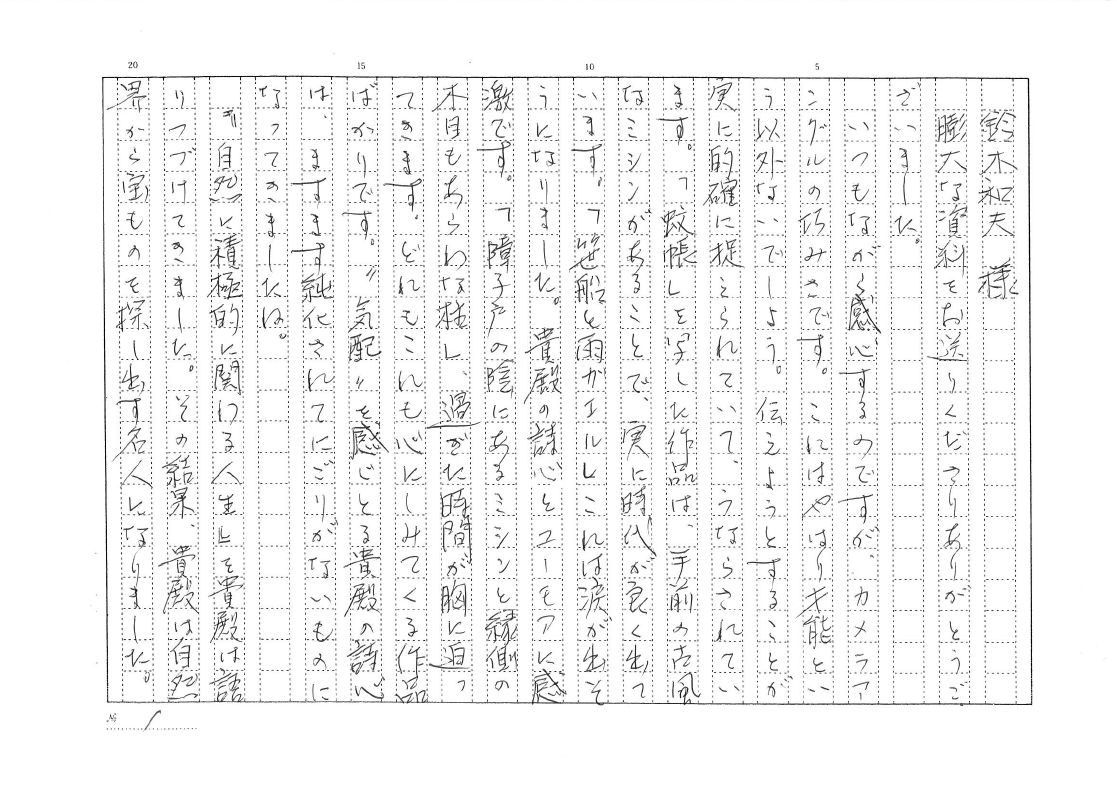 鈴木和夫 様
膨大な資料をお送りくださりありがとうご
ざいました。
いつもながら感心するのですが、カメラア
ングルの巧みさです。これはやはり才能とい
う以外ないでしょう。伝えようとすることが
実に的確に捉えられていて、うならされてい
ます。「蚊帳」を写した作品は、手前の古風
なミシンがあることで、実に時代が良く出て
います。「笹船と雨ガエル」これは涙が出そ
うになりました。貴殿の詩心とユーモアに感
激です。「障子戸の陰にあるミシンと縁側の
木目もあらわな柱」、過ぎた時間が胸に迫っ
てきます。どれもこれも心にしみてくる作品
ばかりです。〝気配〟を感じとる貴殿の詩心
は、ますます純化されてにごりがないものに
なってきましたね。
『自然に積極的に関わる人生』を貴殿は語
りつづけてきました。その結果、貴殿は自然
界から宝ものを探し出す名人になりました。
20
15
10
5
№ 1